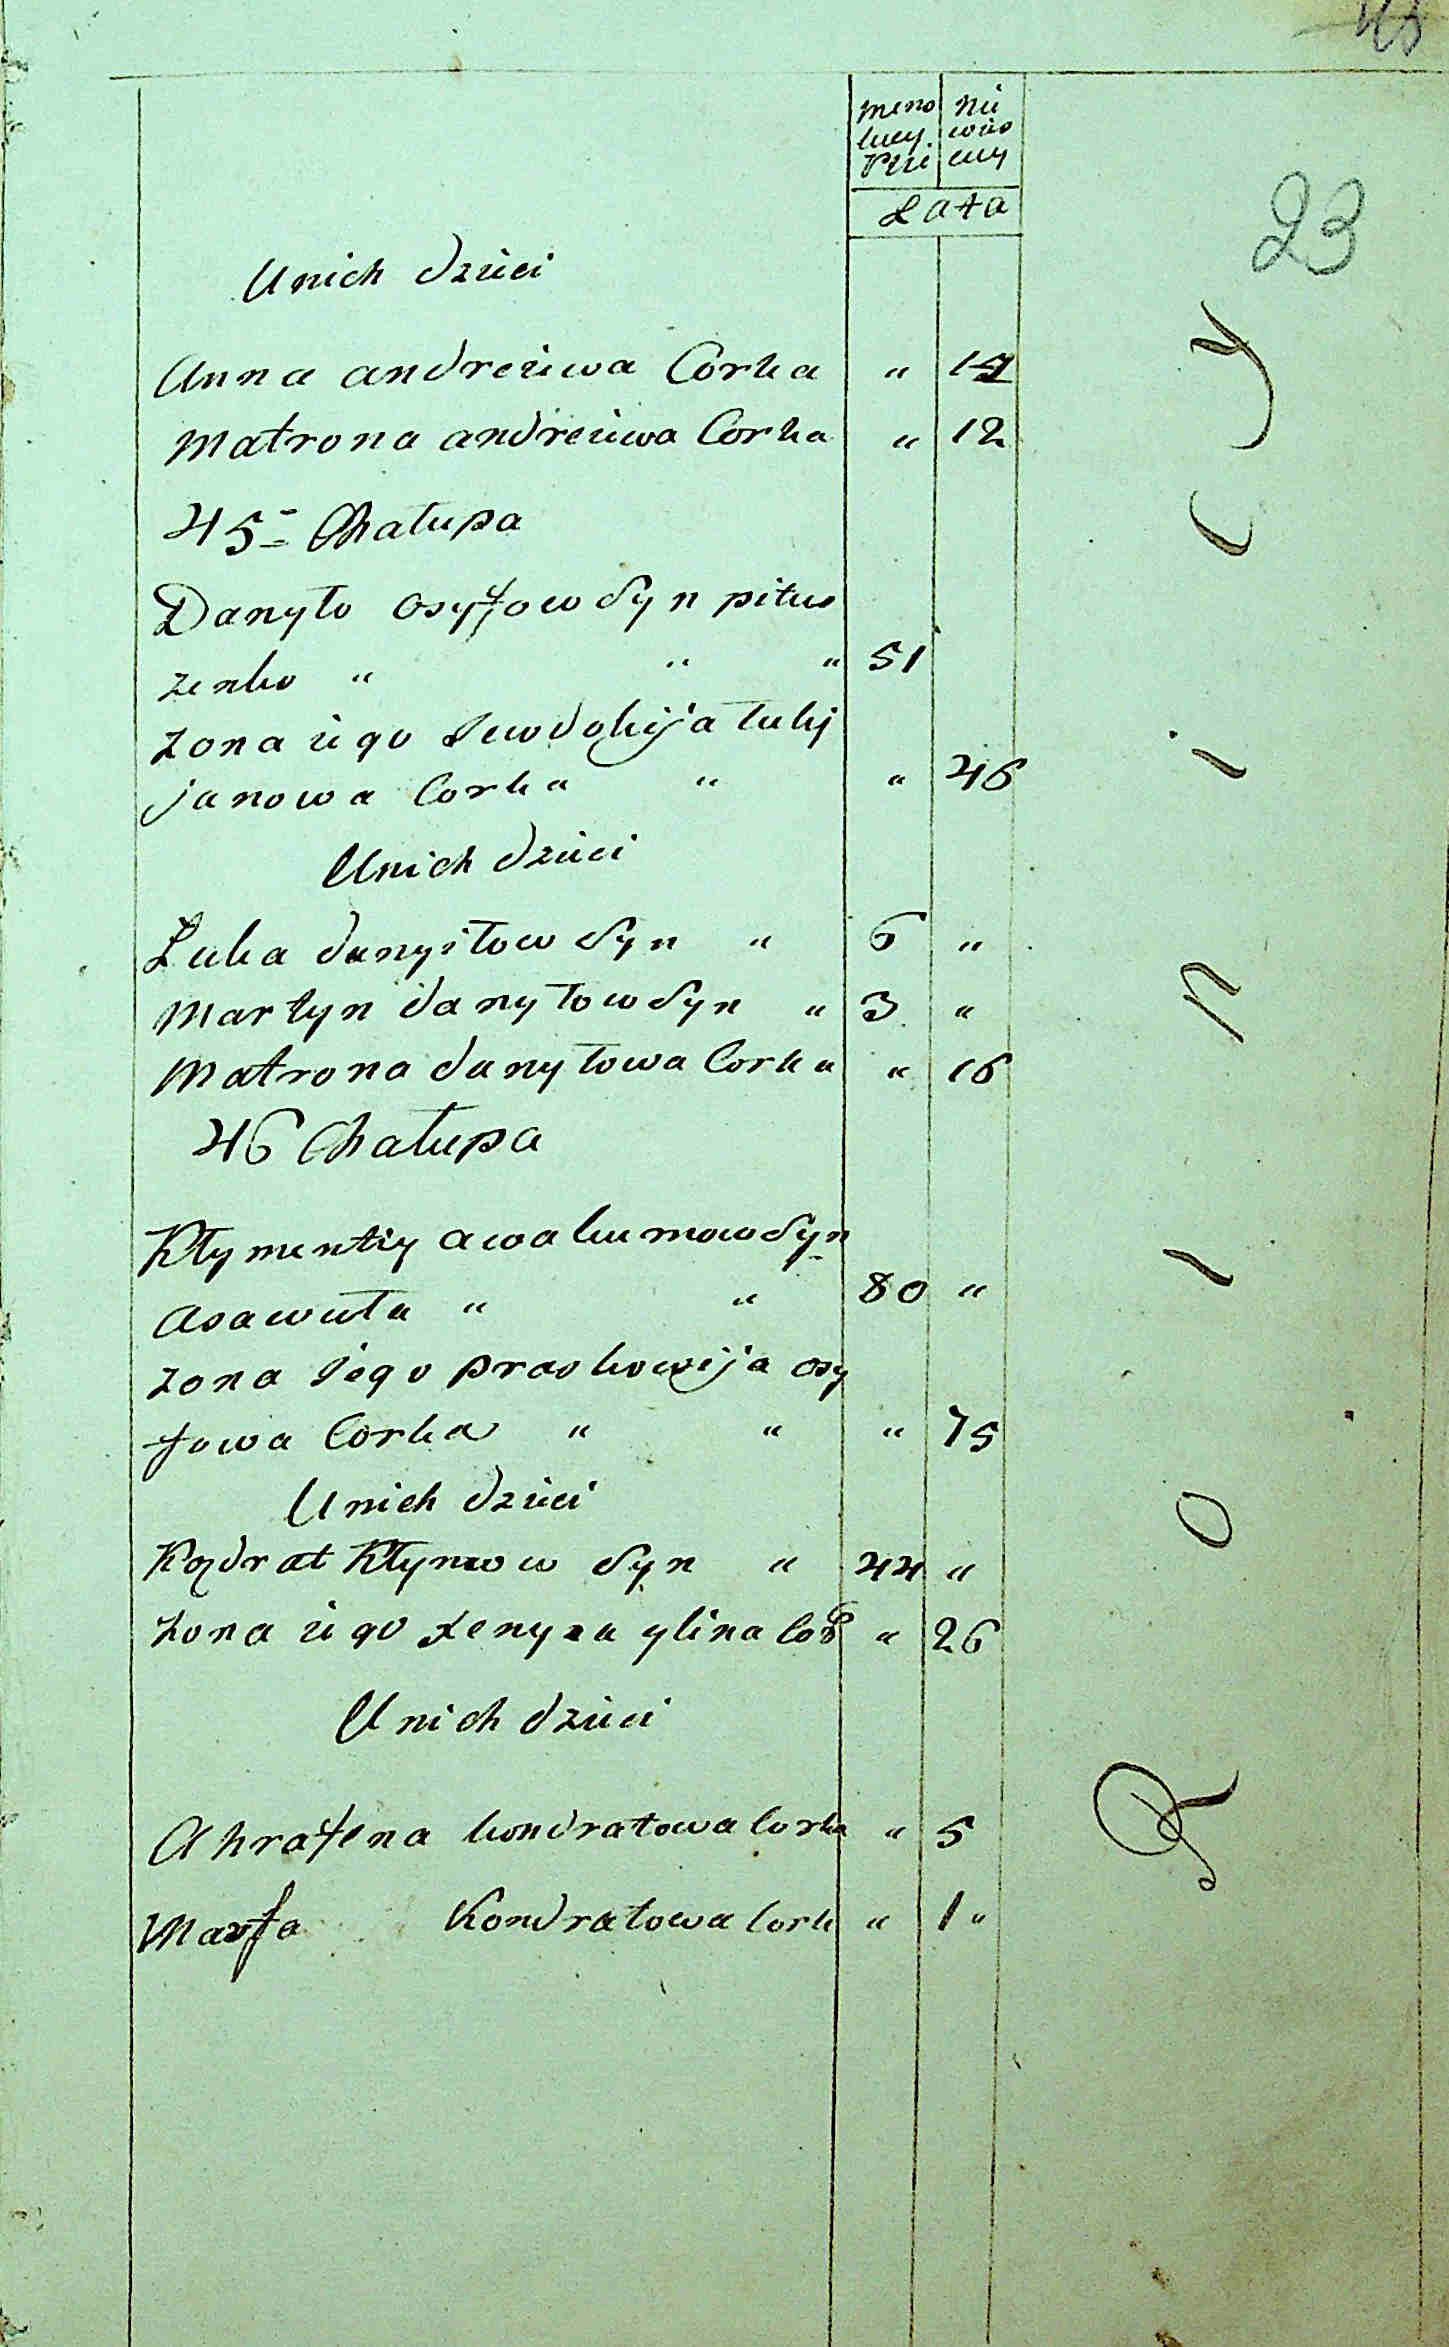 23
Męzo Nie
lucy. wias
Płci cuy
Lata
Unich dzieci
Anna andreiewa Corka " 14
Matrona andreiewa Corka " 12
45 Chałupa
Danyło osyfow Syn pitus
zenko " " " 51
zona iego Jewdokija łukj
janowa Corka " " 46
Unich dzieci
Łuka danyiłow Syn " 6 "
Martyn danyłow Syn " 3 "
Matrona danyłowa Corka " 16
46 Chałupa
Kłymentiy awakumow Syn
asawuła " " 80 "
zona Jego praskowija osy
fowa Corka " " " 75
Unich dzieci
Kodrat Kłymow Syn " 44 "
zona iego xenyza ylina Cor " 26
Unich dzieci
Ahrafena kondratowa Corka " 5
Marfa Kondratowa Cork " 1 "
Rolnicy